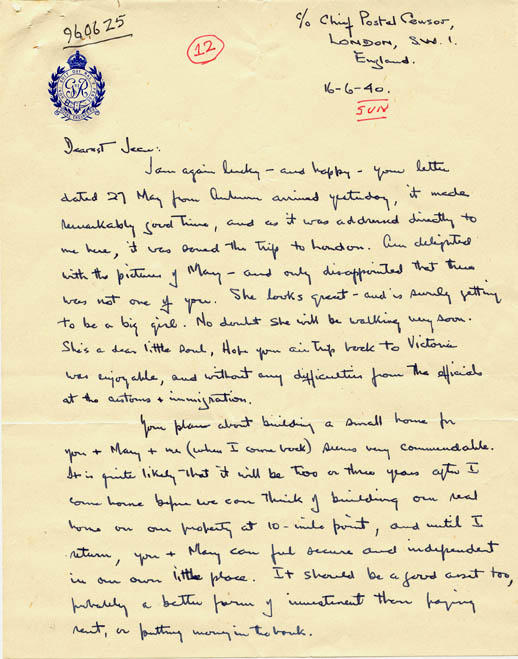 960625
12
c/o Chief Postal Censor,
LONDON, S.W.1.
England.
16-6-40.
SUN
Dearest Jean:
I am again lucky - and happy - your letter
dated 27 May from Auburn arrived yesterday, it made
remarkably good time, and as it was addressed directly to
me here, it was saved the trip to London. Am delighted
with the pictures of Mary - and only disappointed that there
was not one of you. She looks great - and is surely getting
to be a big girl. No doubt she will be walking very soon.
She's a dear little soul, Hope your air trip back to Victoria
was enjoyable, and without any difficulties from the officials
at the customs + immigration.
Your plan about building a small home for
you + Mary + me (when I come back) seems very commendable.
It is quite likely that it will be two or three years after I
come home before we can think of building our real
home on our property at 10-mile point, and until I
return, you + Mary can feel secure and independent
in our own little place. It should be a good asset too,
probably a better form of investment than paying
rent, or putting money in the bank.